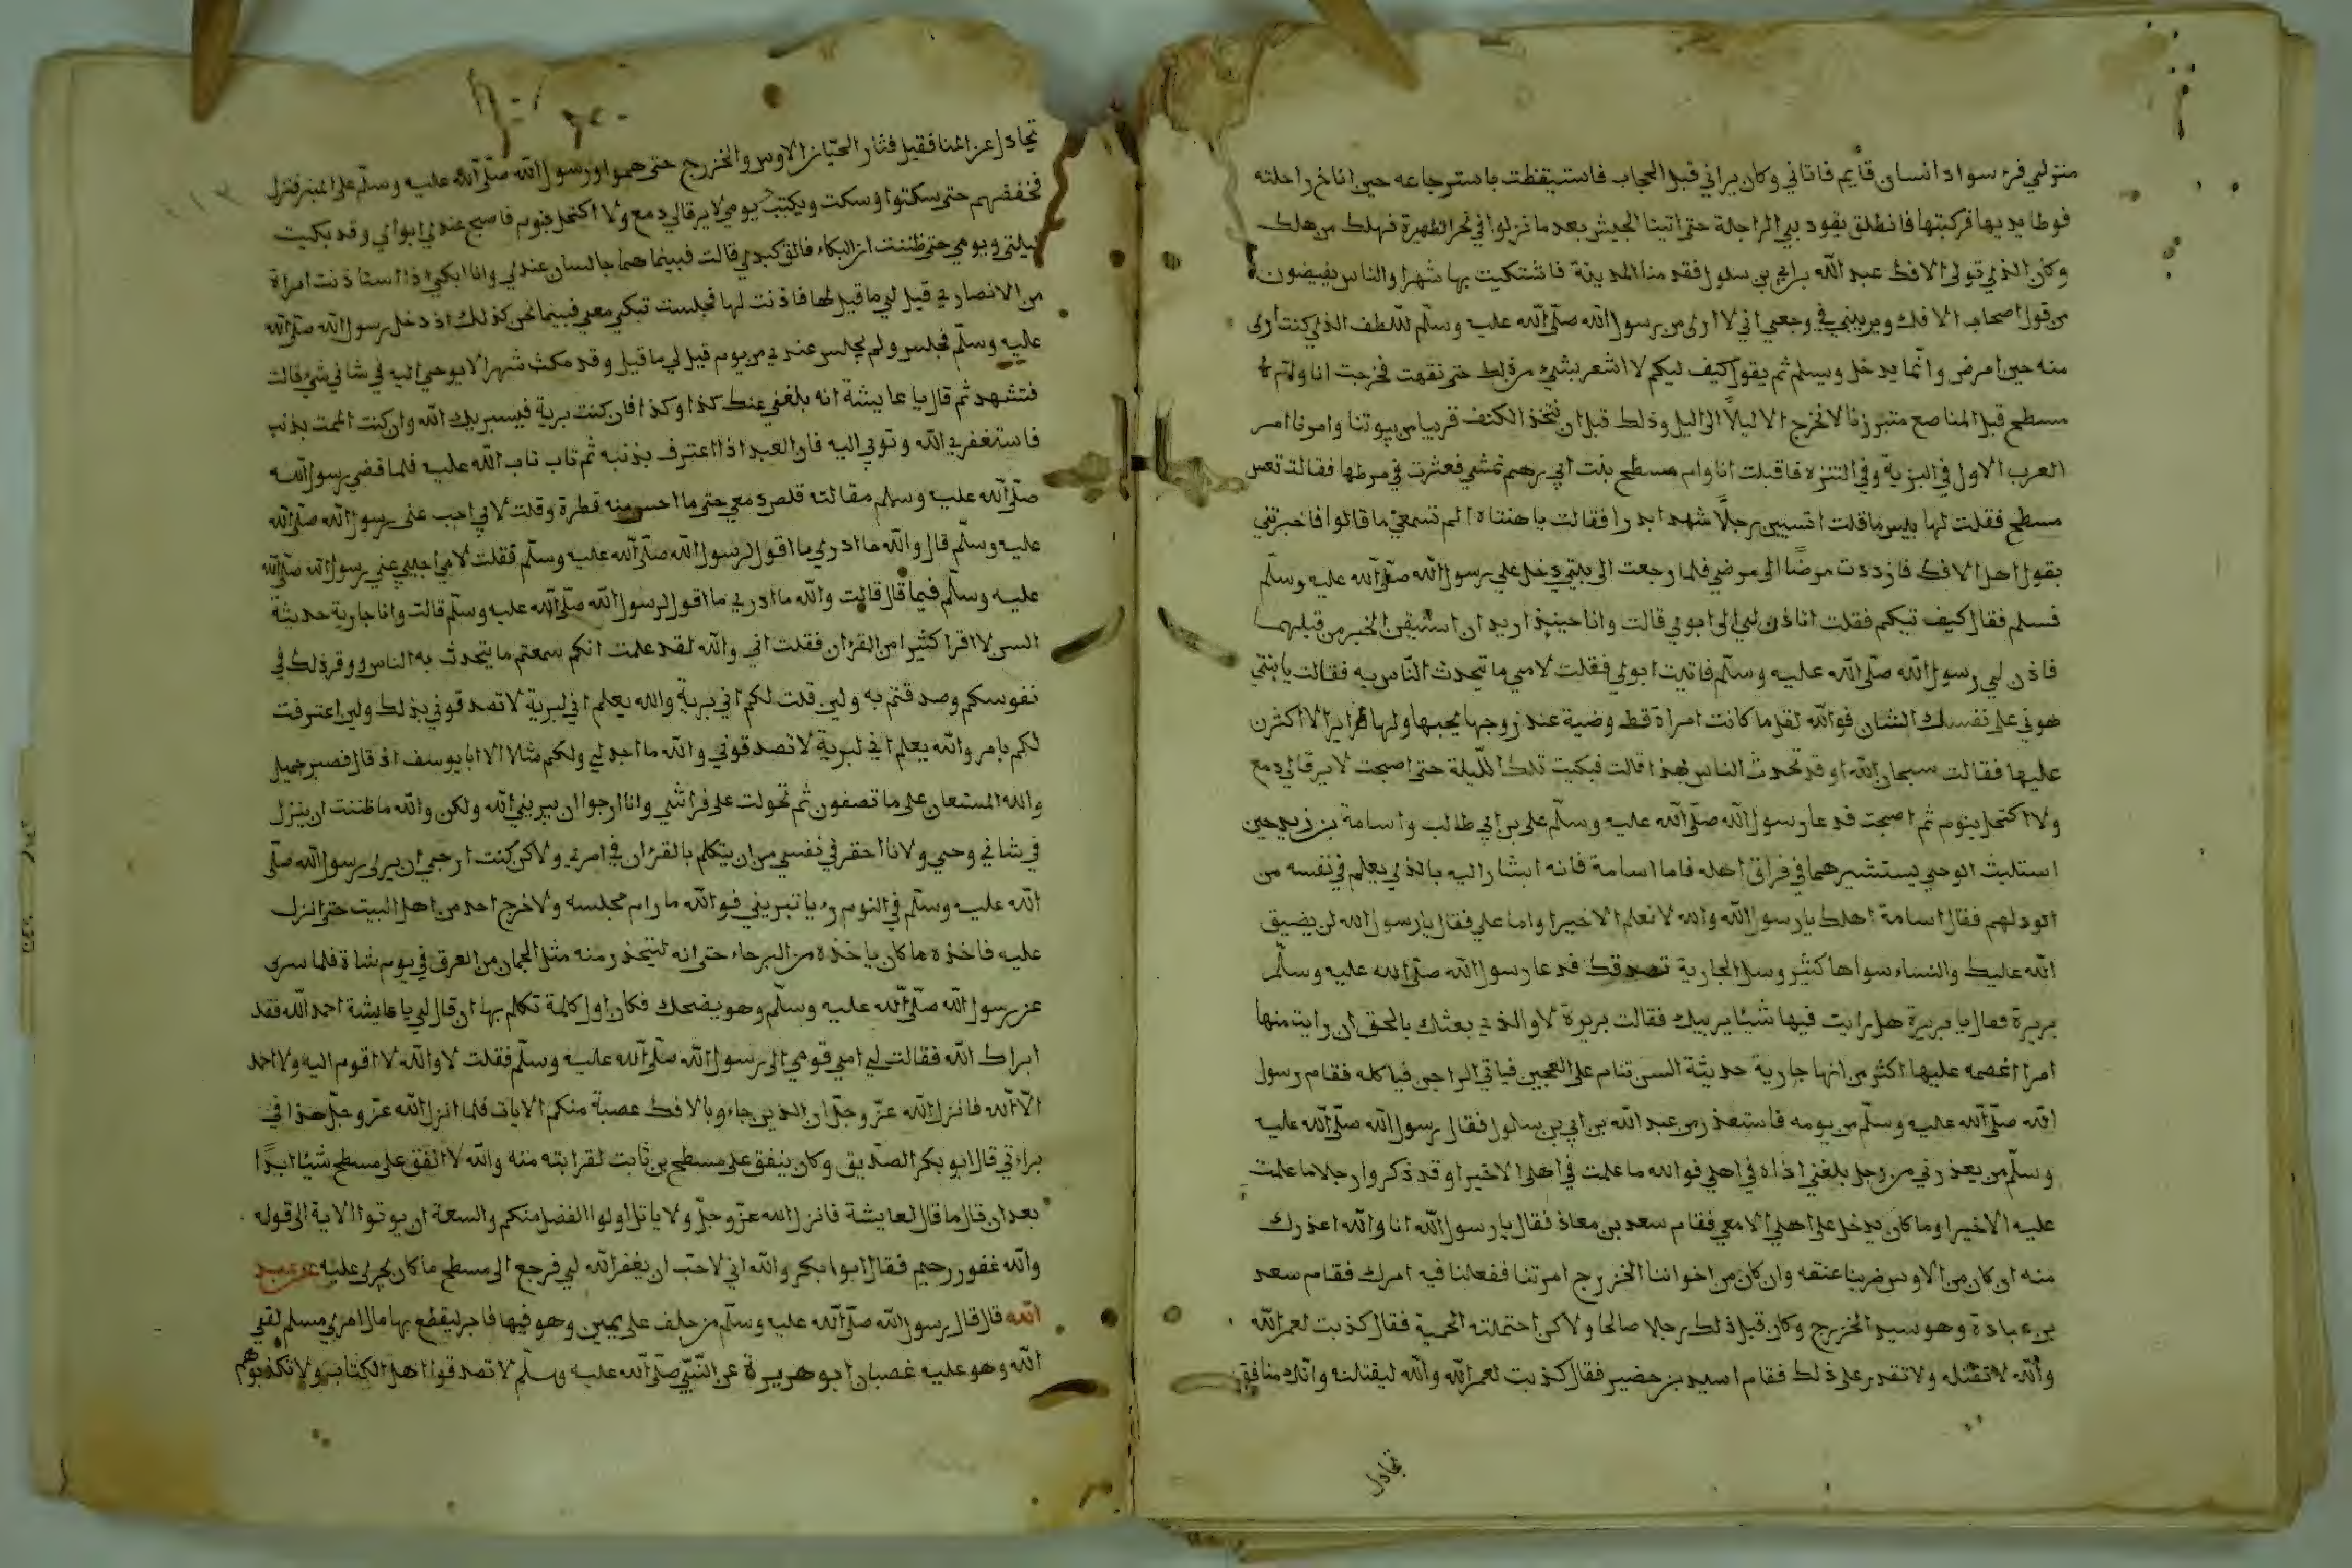 منزلي فرء سواد انسان قايم فاتاني وكان يراني قبل الحجاب فاستيقظت باسترجاعه حين اناخ راحلته
فوطا يديها فركبتها فانطلق يقود بي الراحلة حتى اتينا الجيش بعد ما نزلوا في نحر الظهيرة فهلك من هلك
وكان الذي تولى الافك عبد الله بن ابي بن سلول فقدمنا المدينة فاشتكيت بها شهرا والناس يفيضون
من قول اصحاب الافك ويريبني في وجعي اني لا ارى من رسول الله صلى الله عليه وسلم للطف الذي كنت ارى
منه حين امرض وانما يدخل ويسلم ثم يقول كيف تيكم لا اشعر بشي من ذلك حتى نقهت فخرجت انا وام
مسطح قبل المناصع متبرزنا لا نخرج الا ليلا الى اليل وذلك قبل ان نتخذ الكنف قريبا من بيوتنا وامرنا امر
العرب الاول في البرية وفي التنزه فاقبلت انا وام مسطح بنت ابي رهم نمشي فعثرت في مرطها فقالت تعس
مسطح فقلت لها بيس ما قلت اتسبين رجلا شهد بدرا فقالت يا هنتاه الم تسمعي ما قالوا فاخبرتني
بقول اهل الافك فازددت مرضا الى مرضي فلما رجعت الى بيتي دخل علي رسول الله صلى الله عليه وسلم
فسلم فقال كيف تيكم فقلت اتاذن لي الى ابوي قالت وانا حينيذ اريد ان استيقن الخبر من قبلهما
فاذن لي رسول الله صلى الله عليه وسلم فاتيت ابوي فقلت لامي ما تيحدث الناس به فقالت يا بنتي
هوني على نفسك الشان فوالله لقل ما كانت امراة قط وضية عند زوجها يحبها ولها ضراير الا اكثرن
عليها فقالت سبحان الله او قد تحدث الناس بهذا قالت فبكيت تلك الليلة حتى اصبحت لا يرقا لي دمع
ولا اكتحل بنوم ثم اصبحت فدعا رسول الله صلى الله عليه وسلم علي بن ابي طالب واسامة بن زيد حين
استلبث الوحي يستشيرهما في فراق اهله فاما اسامة فانه اشار اليه بالذي يعلم في نفسه من
الود لهم فقال اسامة اهلك يا رسول الله والله لا نعلم الا خيرا واما علي فقال يا رسول الله لن يضيق
الله عليك والنساء سواها كثير وسل الجارية تصدقك فدعا رسول الله صلى الله عليه وسلم
بريرة فقال يا بريرة هل رايت فيها شيئا يريبك فقالت بريرة لا والذي بعثك بالحق ان رايت منها
امرا اغمصه عليها اكثر من انها جارية حديثة السن تنام على العجين فياتي الداجن فياكله فقام رسول
الله صلى الله عليه وسلم من يومه فاستعذر من عبد الله بن ابي بن سلول فقال رسول الله صلى الله عليه
وسلم من يعذرني من رجل بلغني اذاه في اهلي فوالله ما علمت في اهلي الا خيرا وقد ذكروا رجلا ما علمت
عليه الا خيرا وما كان يدخل على اهلي الا معي فقام سعد بن معاذ فقال يا رسول الله انا والله اعذرك
منه ان كان من الاوس ضربنا عنقه وان كان من اخواننا الخزرج امرتنا ففعلنا فيه امرك فقام سعد
بن عبادة وهو سيد الخزرج وكان قبل ذلك رجلا صالحا ولاكن احتملته الحمية فقال كذبت لعمر الله
والله لا تقتله ولا تقدر على ذلك فقام اسيد بن حضير فقال كذبت لعمر الله والله ليقتلنه وانك منافق
تجادل
تجادل عن المنافقين فثار الحيان الاوس والخزرج حتى هموا ورسول الله صلى الله عليه وسلم على المنبر فنزل
فخفضهم حتى سكتوا وسكت وبكيت يومي لا يرقا لي دمع ولا اكتحل بنوم فاصبح عندي ابواي وقد بكيت
ليلتي ويومي حتى ظننت ان البكاء فالق كبدي قالت فبينما هما جالسان عندي وانا ابكي اذا استاذنت امراة
من الانصار قيل لي ما قيل لها فاذنت لها فجلست تبكي معي فبينما نحن كذلك اذ دخل رسول الله صلى الله
عليه وسلم فجلس ولم يجلس عندي من يوم قيل لي ما قيل وقد مكث شهرا لا يوحي اليه في شاني شي قالت
فتشهد ثم قال يا عايشة انه بلغني عنك كذا وكذا فان كنت برية فيسبريك الله وان كنت الممت بذنب
فاستغفري الله وتوبي اليه فان العبد اذا اعترف بذنبه ثم تاب تاب الله عليه فلما قضي رسول الله
صلى الله عليه وسلم مقالته قلص دمعي حتى ما احس منه قطرة وقلت لابي اجب عني رسول الله صلى الله
عليه وسلم قال والله ما ادري ما اقول لرسول الله صلى الله عليه وسلم فقلت لامي اجيبي عني رسول الله صلى الله
عليه وسلم فيما قال قالت والله ما ادري ما اقول لرسول الله صلى الله عليه وسلم قالت وانا جارية حديثة
السن لا اقرا كثيرا من القران فقلت اني والله لقد علمت انكم سمعتم ما يتحدث به الناس ووقر ذلك في
نفوسكم وصدقتم به ولين قلت لكم اني برية والله يعلم اني لبرية لا تصدقوني بذلك ولين اعترفت
لكم بامر والله يعلم اني لبرية لا تصدقوني والله ما اجد لي ولكم مثلا الا ابا يوسف اذ قال فصبر جميل
والله المستعان على ما تصفون ثم تحولت على فراشي وانا ارجوا ان يبريني الله ولكن والله ما ظننت ان ينزل
في شاني وحي ولانا احقر في نفسي من ان يتكلم بالقران في امري ولاكن كنت ارجي ان يرى رسول الله صلى
الله عليه وسلم في النوم رءيا تبريني فوالله ما رام مجلسه ولا خرج احد من اهل البيت حتى انزل
عليه فاخذه ما كان ياخذه من البرحاء حتى انه ليتحذر منه مثل الجمان من العرق في يوم شاة فلما سرى
عن رسول الله صلى الله عليه وسلم وهو يضحك فكان اول كلمة تكلم بها ان قال لي يا عايشة احمد الله فقد
ابراك الله فقالت لي امي قومي الى رسول الله صلى الله عليه وسلم فقلت لا والله لا اقوم اليه ولا احمد
الا الله فانزل الله عز وجل ان الذين جاءو بالافك عصبة منكم الايات فلما انزل الله عز وجل هذا في
براءتي قال ابو بكر الصديق وكان ينفق على مسطح بن ثابت لقرابته منه والله لا انفق على مسطح شيئا ابدا
بعد ان قال ما قال لعايشة فانزل الله عز وجل ولا ياتل اولوا الفضل منكم والسعة ان يوتوا الاية الى قوله
والله غفور رحيم فقال ابوا بكر والله اني لاحب ان يغفر الله لي فرجع الى مسطح ما كان يجري عليه عن عبد
الله قال قال رسول الله صلى الله عليه وسلم من حلف على يمين وهو فيها فاجر ليقطع بها مال امري مسلم لقي
الله وهو عليه غضبان ابو هريرة عن النبي صلى الله عليه وسلم لا تصدقوا اهل الكتاب ولا تكذبوهم